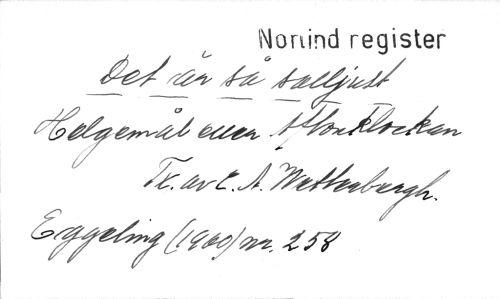 Norlind register
Det är så salljust
Helgemål eller Aftonklockan
Tx. av E. A. Wetterbergh.
Eggeling (1900) nr. 258